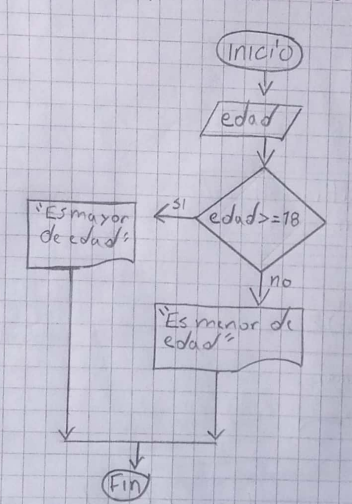 Inicio
edad
edad>=18
si
"Es mayor
de edad"
no
"Es menor de
edad"
Fin